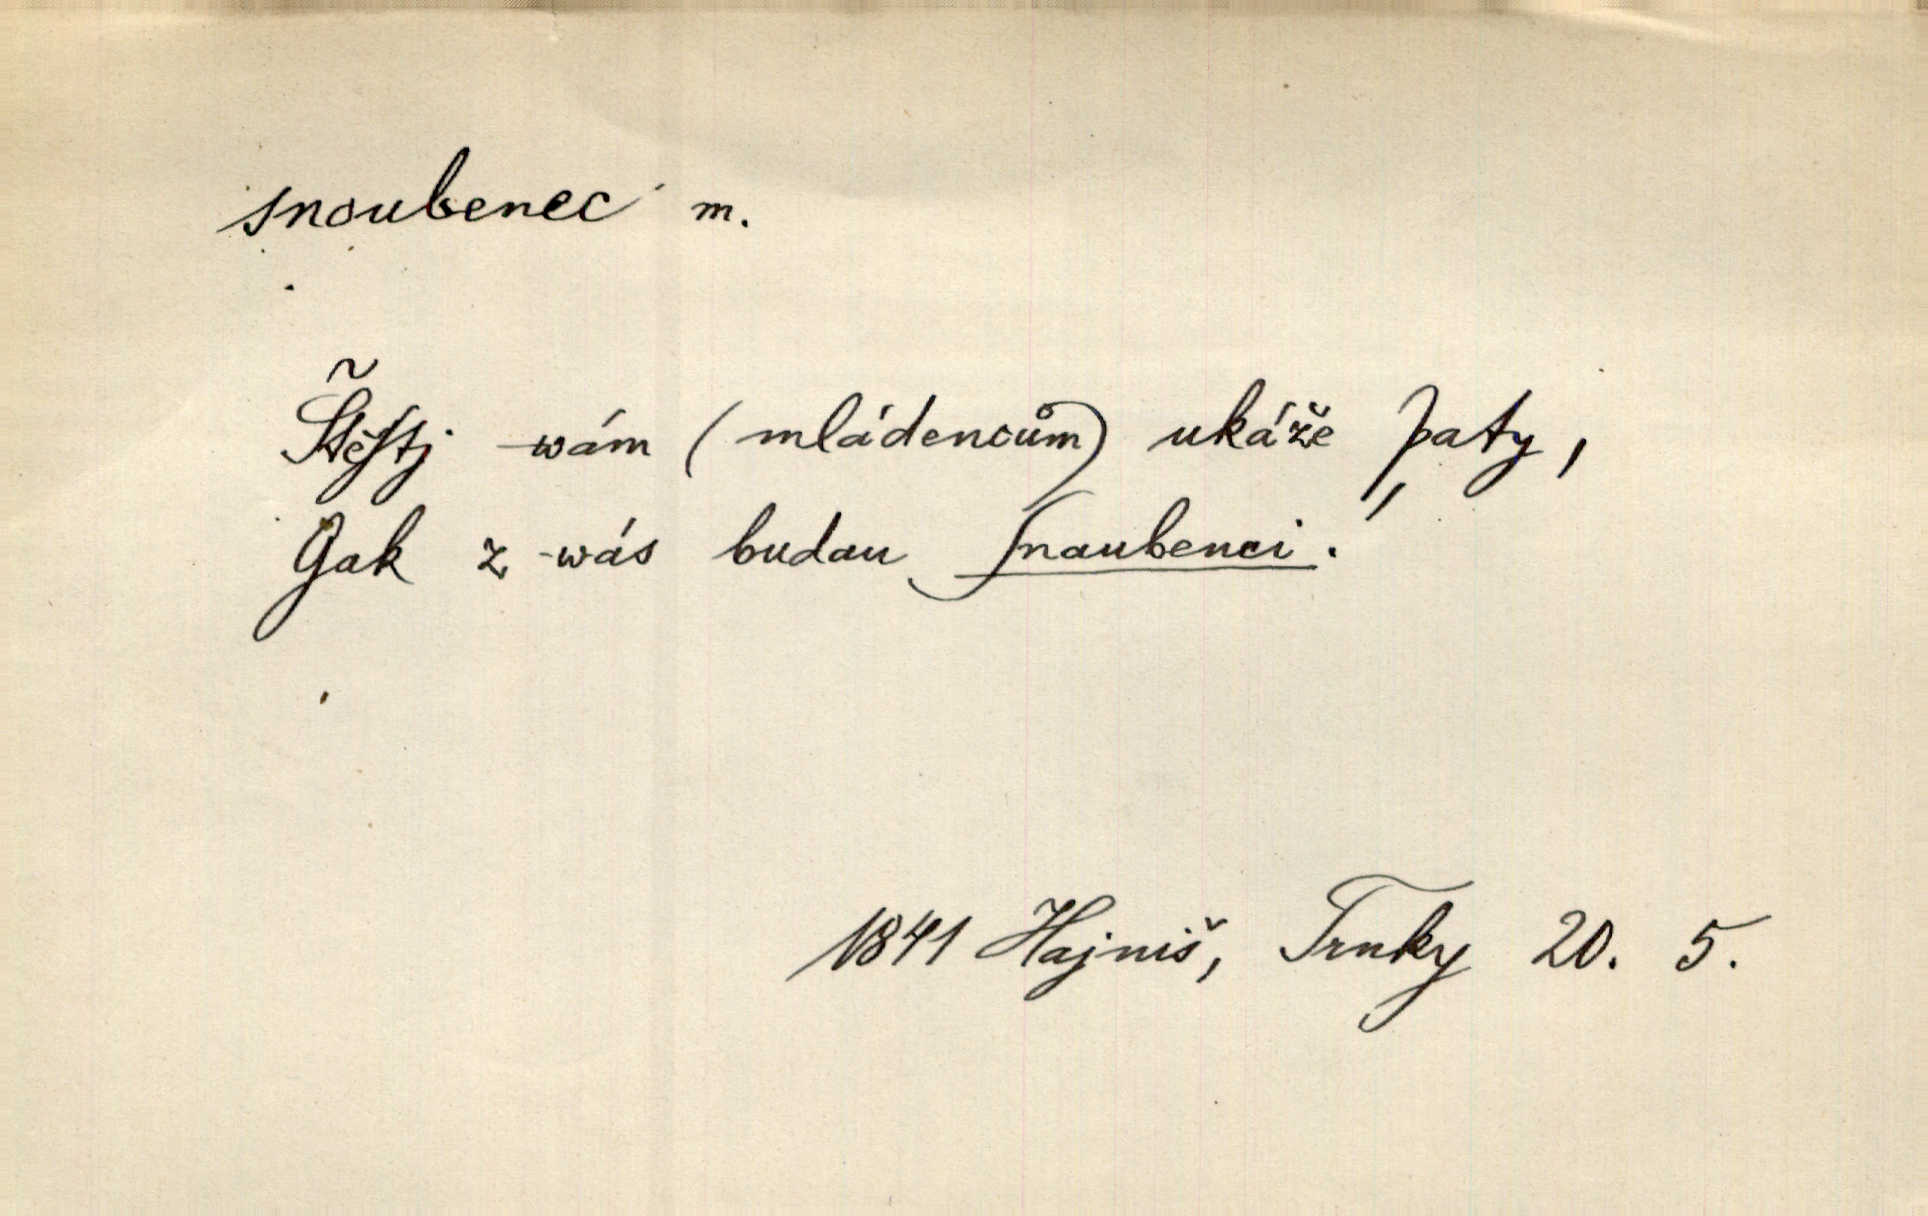 snoubenec m.
Štěſtj wám (mládencům) ukáže paty,
Gak z wás budau ſnaubenci.
1841 Hajniš, Trnky 20. 5.